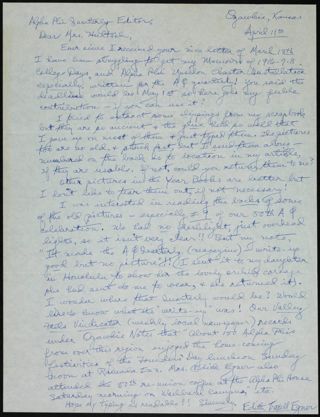 Alpha Phi Quarterly Editor,
Ozawkie, Kansas
April 11th
Dear Mrs.
Ever since I received your nice letter of March 18th
I have been struggling to get my Memories of 1916-7-8
College Days and Alpha Phi Upsilon Chapter Installation
especially written for the A Φ quarterly! You said the
deadline would be May 1st so here is my feeble
contribution - if you can use it!
I tried to extract some clippings from my scrapbook
but they are so
the glue held so well that
I gave up on most of them &
The pictures
are so old, &
but I send them along -
numbered on the back as to location in my article,
if they are usable. If not, could you return them to me?
Other pictures in the Year Books are better but
I don't like to tear them out, if not necessary!
I was interested in reading the backs of some
of the old pictures - especially # 9 of our 50th A Φ
Celebration. We had no flashlight, just overhead
lights, so it isn't very clear!! But my note,
"It made the A Φ Quarterly (magazine) & write-up
good but no picture"!! (I sent it to my daughter
in Honolulu to show her the lovely orchid corsage
she had sent to me to wear, & she returned it).
I wonder where that Quarterly would be! Would
like to know what the write-up was! Our Valley
Falls Vindicator (weekly local newspaper) records
under Ozawkie Notes that "about 100 Alpha Phis
from over this region enjoyed the home-coming
festivities of the Founders' Day luncheon Sunday
noon at Ramada Inn. Mrs. Edith Egnor also
attended the 50th re-union coffee at the Alpha Phi House
Saturday morning on Washburn Campus, etc.
Hope my typing is readable!! Sincerely, Edith
Egnor